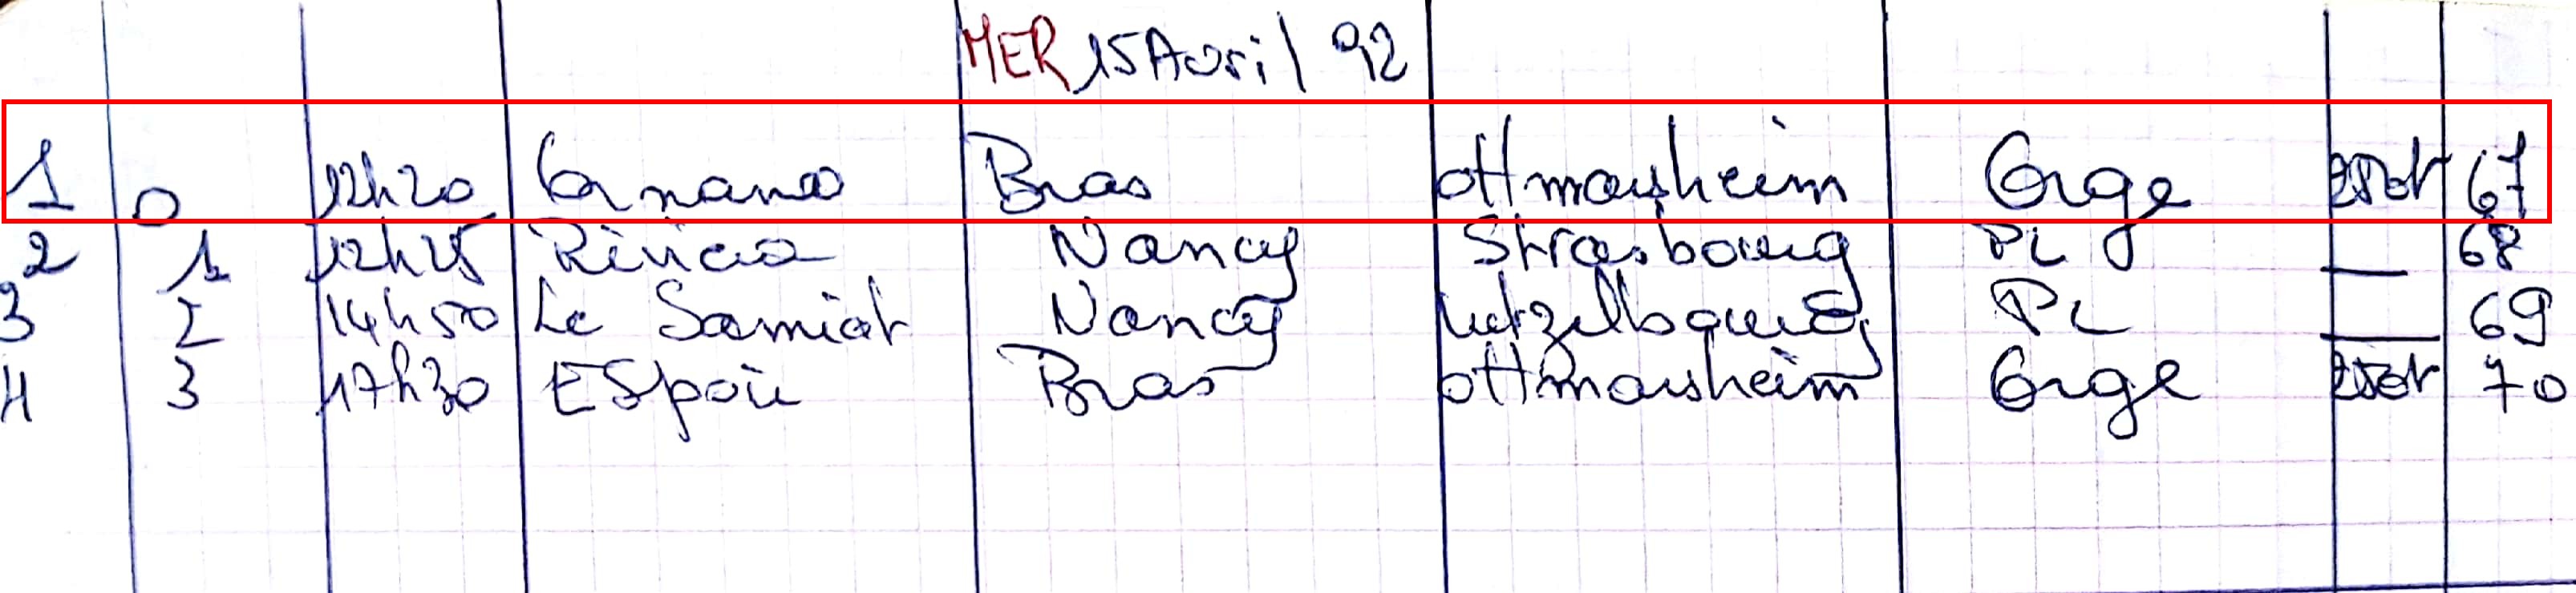 MER 15 Avril 92
1 0 12h20 Ornano Bras ottmarsheim Orge 250t 67
2 1 12h25 Nancy Strasbourg PL — 68
3 2 14h50 Le Samiat Nancy Lutzelbourg PL — 69
4 3 17h30 ESpoir Bras ottmarsheim Orge 250t 70